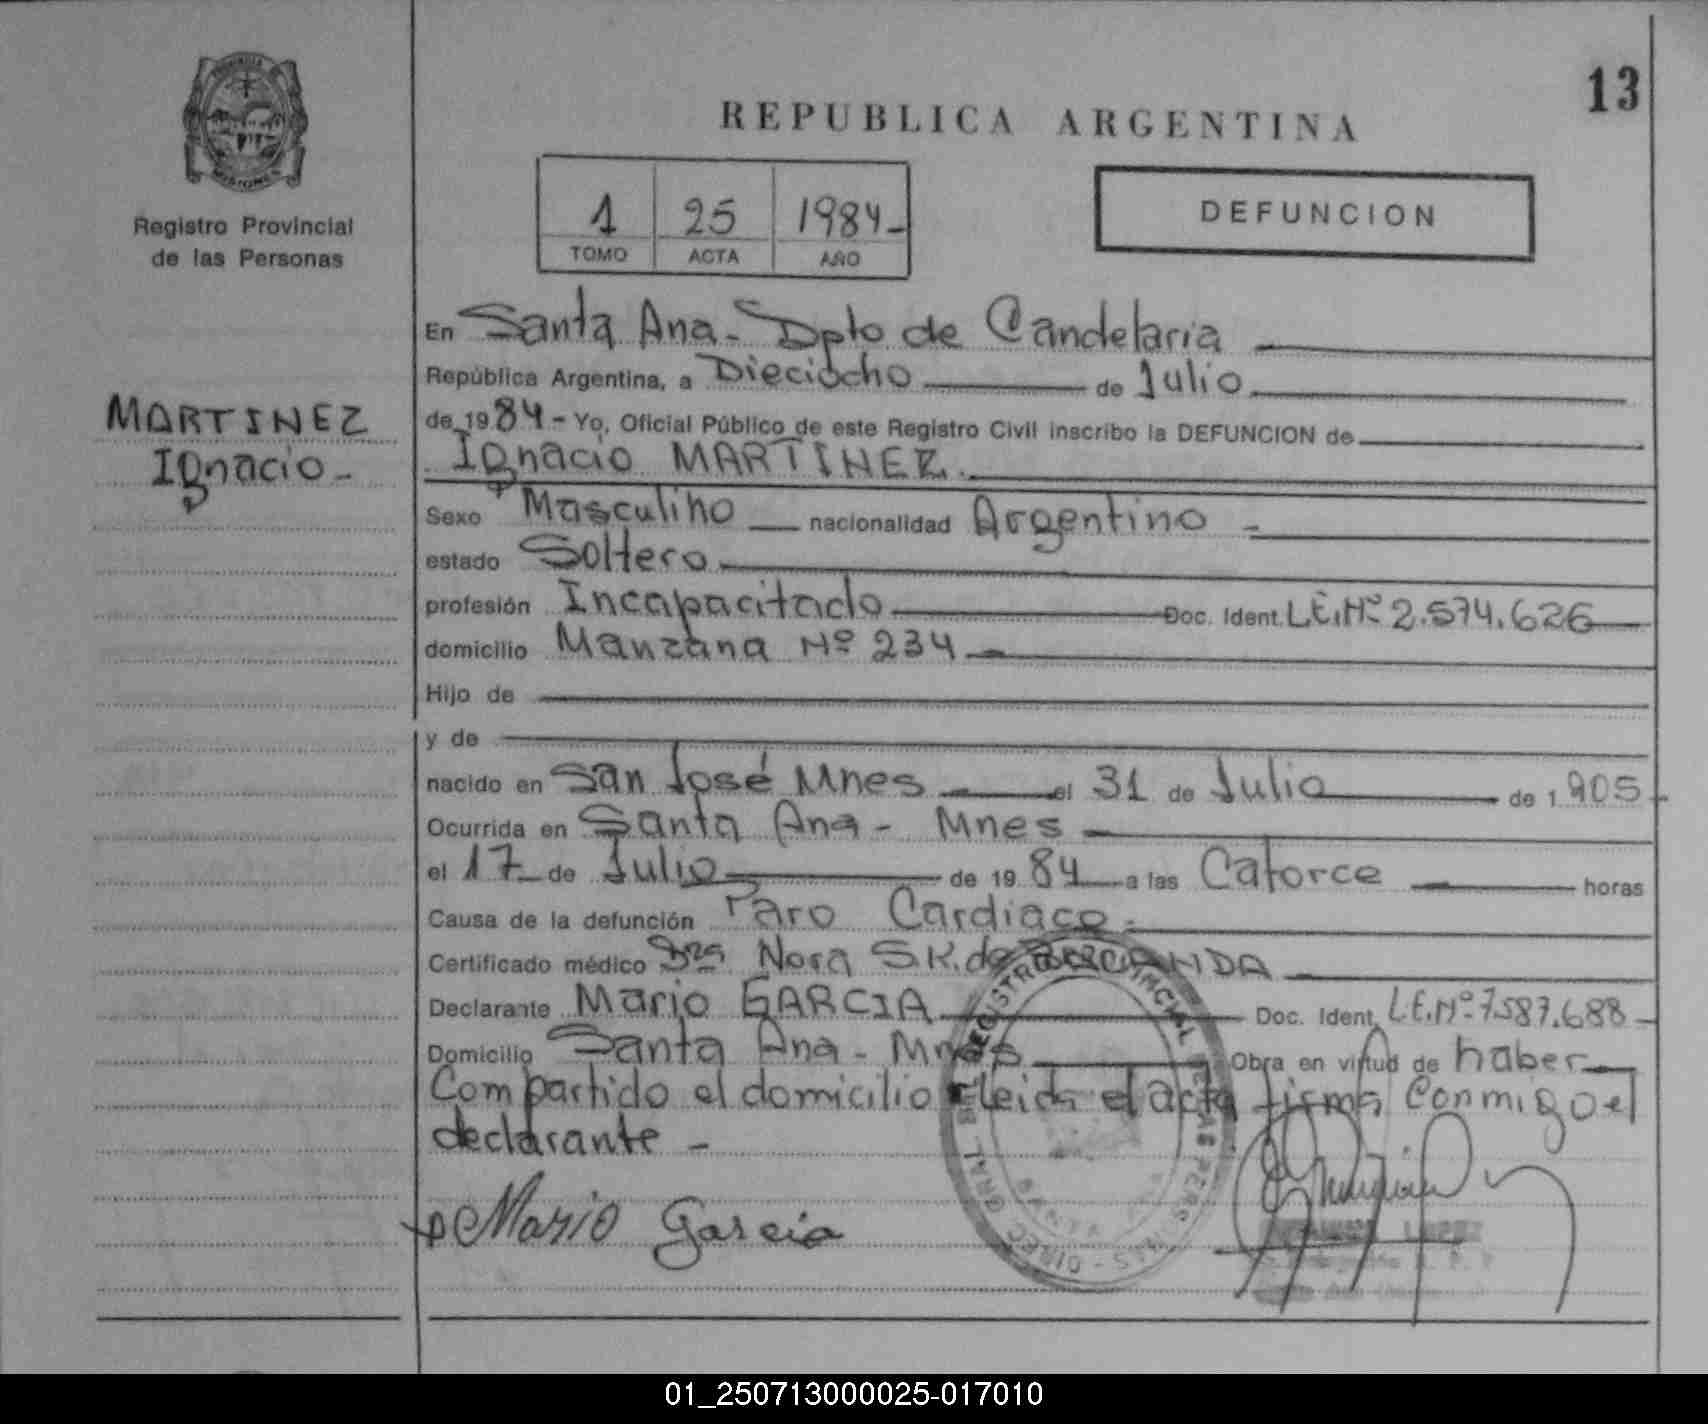 PROVINCIA DE
MISIONES
Registro Provincial
de las Personas
MARTINEZ
Ignacio -
13
REPUBLICA ARGENTINA
1 25 1984-
TOMO ACTA AÑO
DEFUNCION
En Santa Ana - Dpto de Candelaria
República Argentina, a Dieciocho de Julio
de 1984 - Yo, Oficial Público de este Registro Civil inscribo la DEFUNCION de
Ignacio MARTINEZ.
Sexo Masculino nacionalidad Argentino -
estado Soltero
profesión Incapacitado Doc. Ident. L.E. Nº 2.574.626
domicilio Manzana Nº 234
Hijo de
y de
nacido en San José Mnes el 31 de Julio de 1905
Ocurrida en Santa Ana - Mnes
el 17 de Julio de 1984 a las Catorce horas
Causa de la defunción Paro Cardiaco.
Certificado médico Dra Nora S.K. de
Declarante Mario GARCIA Doc. Ident. L.E. Nº 7.587.688
Domicilio Santa Ana - Mnes Obra en virtud de haber
Compartido el domicilio leida el acta firma Conmigo el
declarante -
Mario Garcia
LOPEZ
01_250713000025-017010